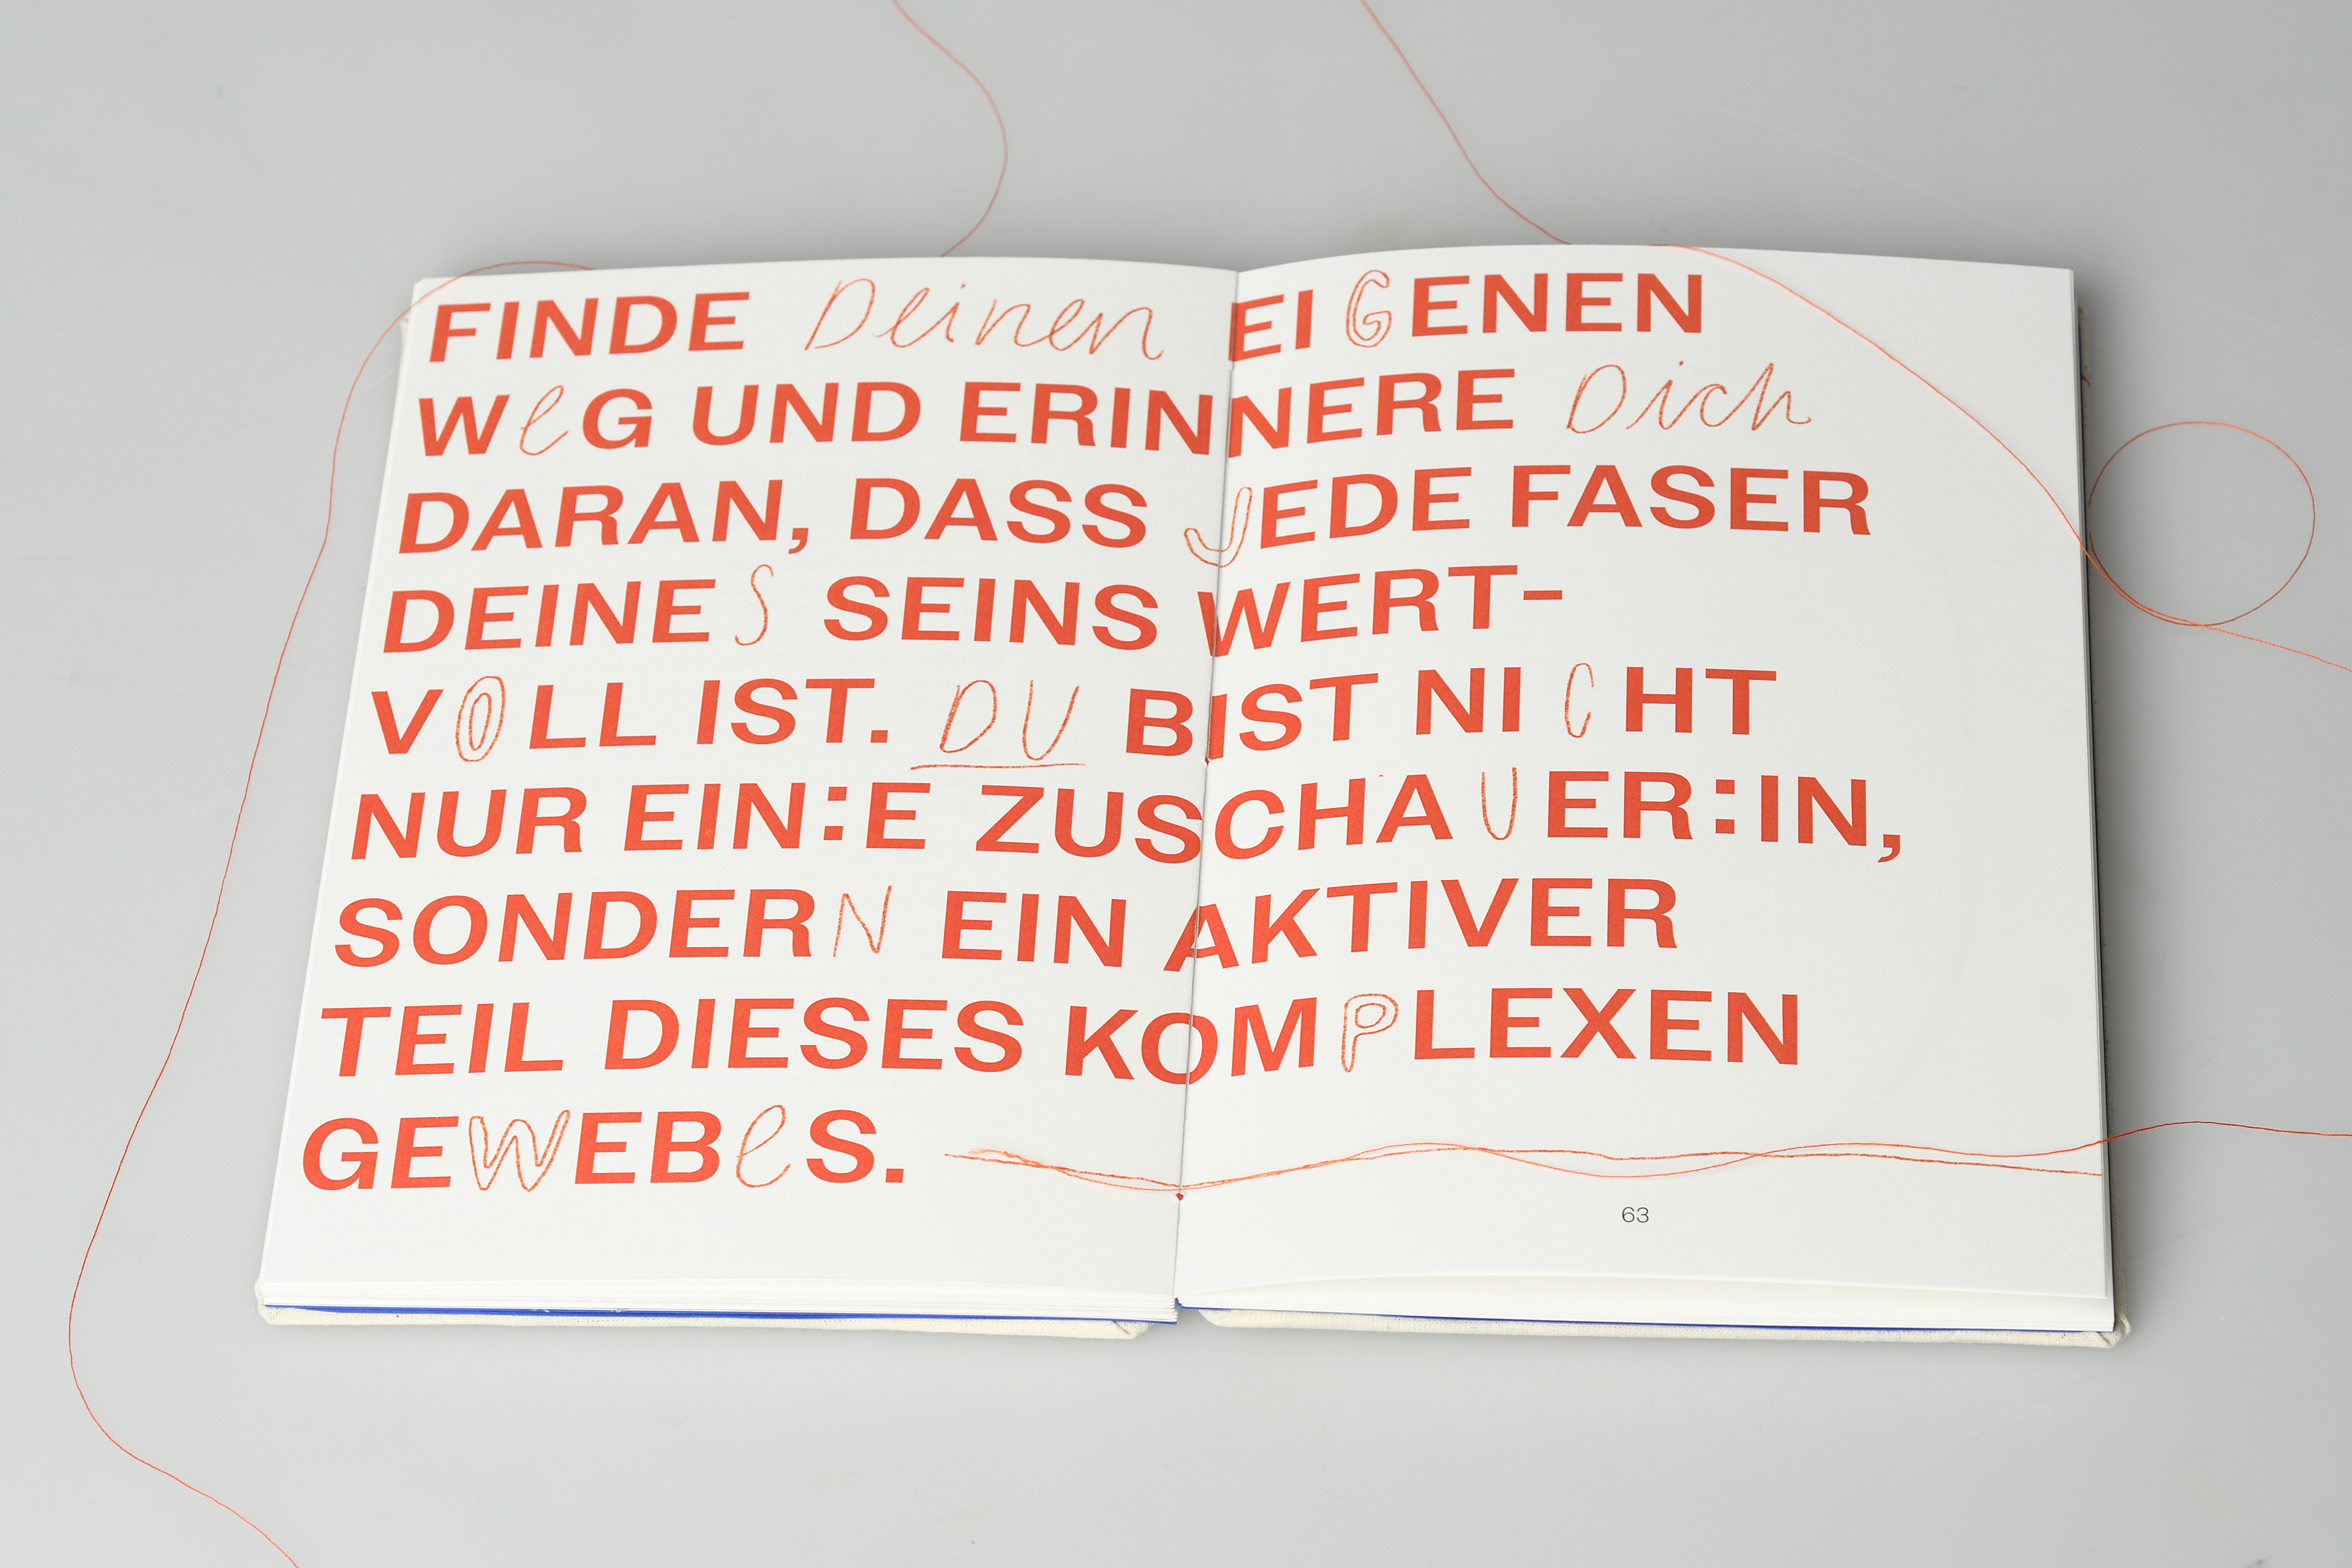 FINDE Deinen EIGENEN
WeG UND ERINNERE Dich
DARAN, DASS JEDE FASER
DEINES SEINS WERT-
VOLL IST. DU BIST NICHT
NUR EIN:E ZUSCHAUER:IN,
SONDERN EIN AKTIVER
TEIL DIESES KOMPLEXEN
GEWEBeS.
63